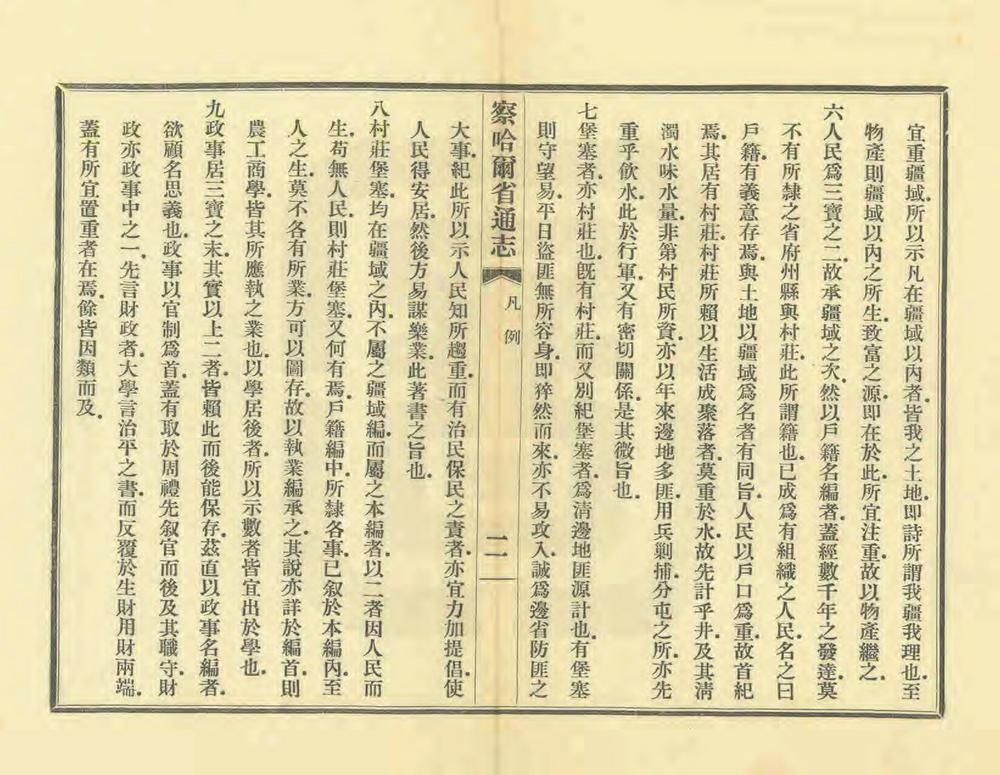 宜重疆域．所以示凡在疆域以內者．皆我之土地．即詩所謂我疆我理也．至
物產則疆域以內之所生．致富之源．即在於此．所宜注重．故以物產繼之．
六人民爲三寶之二．故承疆域之次．然以戶籍名編者．蓋經數千年之發達．莫
不有所隸之省府州縣與村莊．此所謂籍也．已成爲有組織之人民．名之曰
戶籍．有義意存焉．與土地以疆域爲名者．有同旨．人民以戶口爲重．故首紀
焉．其居有村莊．村莊所賴以生活成聚落者．莫重於水．故先計乎井．及其清
濁水味水量．非第村民所資．亦以年來邊地多匪．用兵剿捕．分屯之所．亦先
重乎飲水．此於行軍．又有密切關係．是其微旨也．
七堡塞者．亦村莊也．旣有村莊．而又別紀堡塞者．爲清邊地匪源計也．有堡塞
則守望易．平日盜匪無所容身．即猝然而來．亦不易攻入．誠爲邊省防匪之
察哈爾省通志
凡例
二
大事．紀此所以示人民知所趨重．而有治民保民之責者．亦宜力加提倡．使
人民得安居．然後方易謀樂業．此著書之旨也．
八村莊堡塞．均在疆域之內．不屬之疆域編．而屬之本編者．以二者因人民而
生．苟無人民．則村莊堡塞．又何有焉．戶籍編中．所隸各事．已叙於本編內．至
人之生．莫不各有所業．方可以圖存．故以執業編承之．其說亦詳於編首．則
農工商學．皆其所應執之業也．以學居後者．所以示數者皆宜出於學也．
九政事居三寶之末．其實以上二者．皆賴此而後能保存．茲直以政事名編者．
欲顧名思義也．政事以官制爲首．蓋有取於周禮先叙官而後及其職守．財
政亦政事中之一．先言財政者．大學言治平之書．而反覆於生財用財兩端．
蓋有所宜置重者在焉．餘皆因類而及．